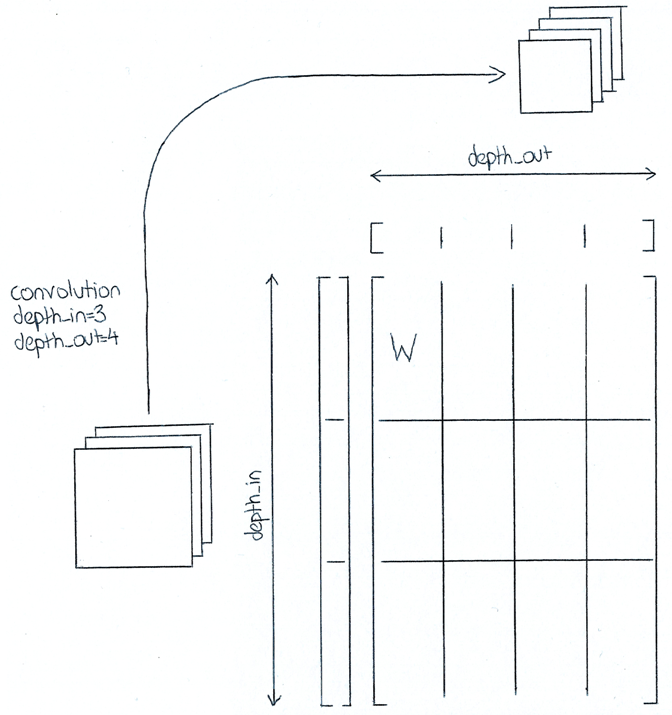 depth_out
convolution
depth_in=3
depth_out=4
W
depth_in